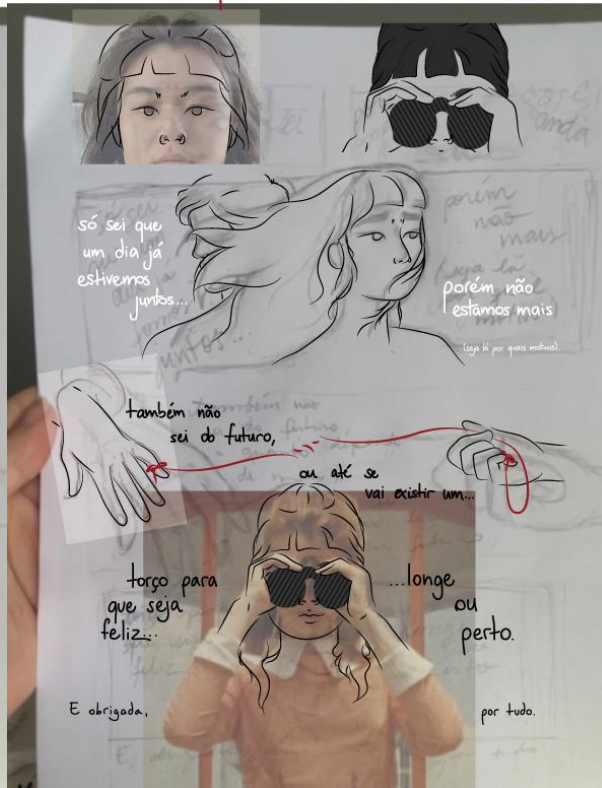 só sei que
um dia já
estivemos
juntos...
porém não
estamos mais
(seja lá por quais motivos).
também não
sei do futuro,
ou até se
vai existir um...
torço para
que seja
feliz...
...longe
ou
perto.
E obrigada,
por tudo.